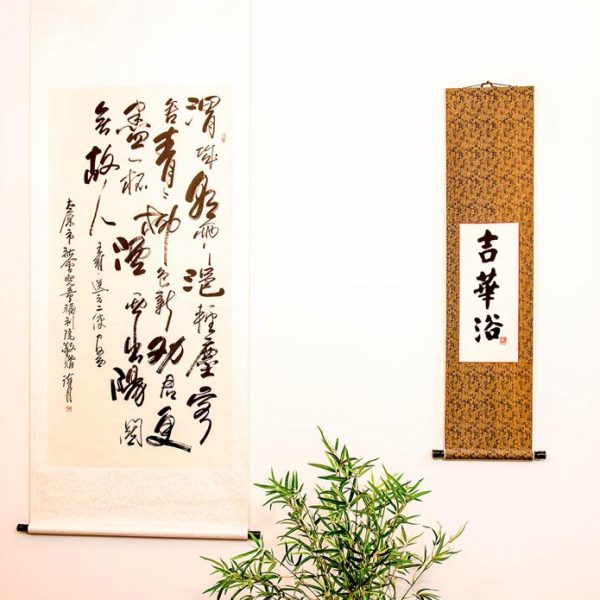 渭城朝雨浥輕塵客
舍青々柳色新劝君更
盡一杯酒西出陽関
無故人
王維送元二使安西
太原市社會兒童福利院敬贈
吉華浴